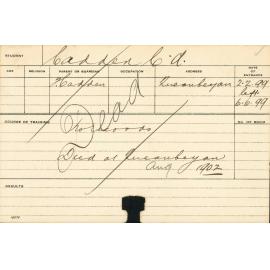 STUDENT Cadden C. A.
AGE RELIGION PARENT OR GUARDIAN OCCUPATION ADDRESS DATE OF ENTRANCE
Queanbeyan 2.2.99
left
6.6.99
COURSE OF TRAINING NO. OF ROOM
Dead
Died at Queanbeyan
Aug 1902
RESULTS
NOTE